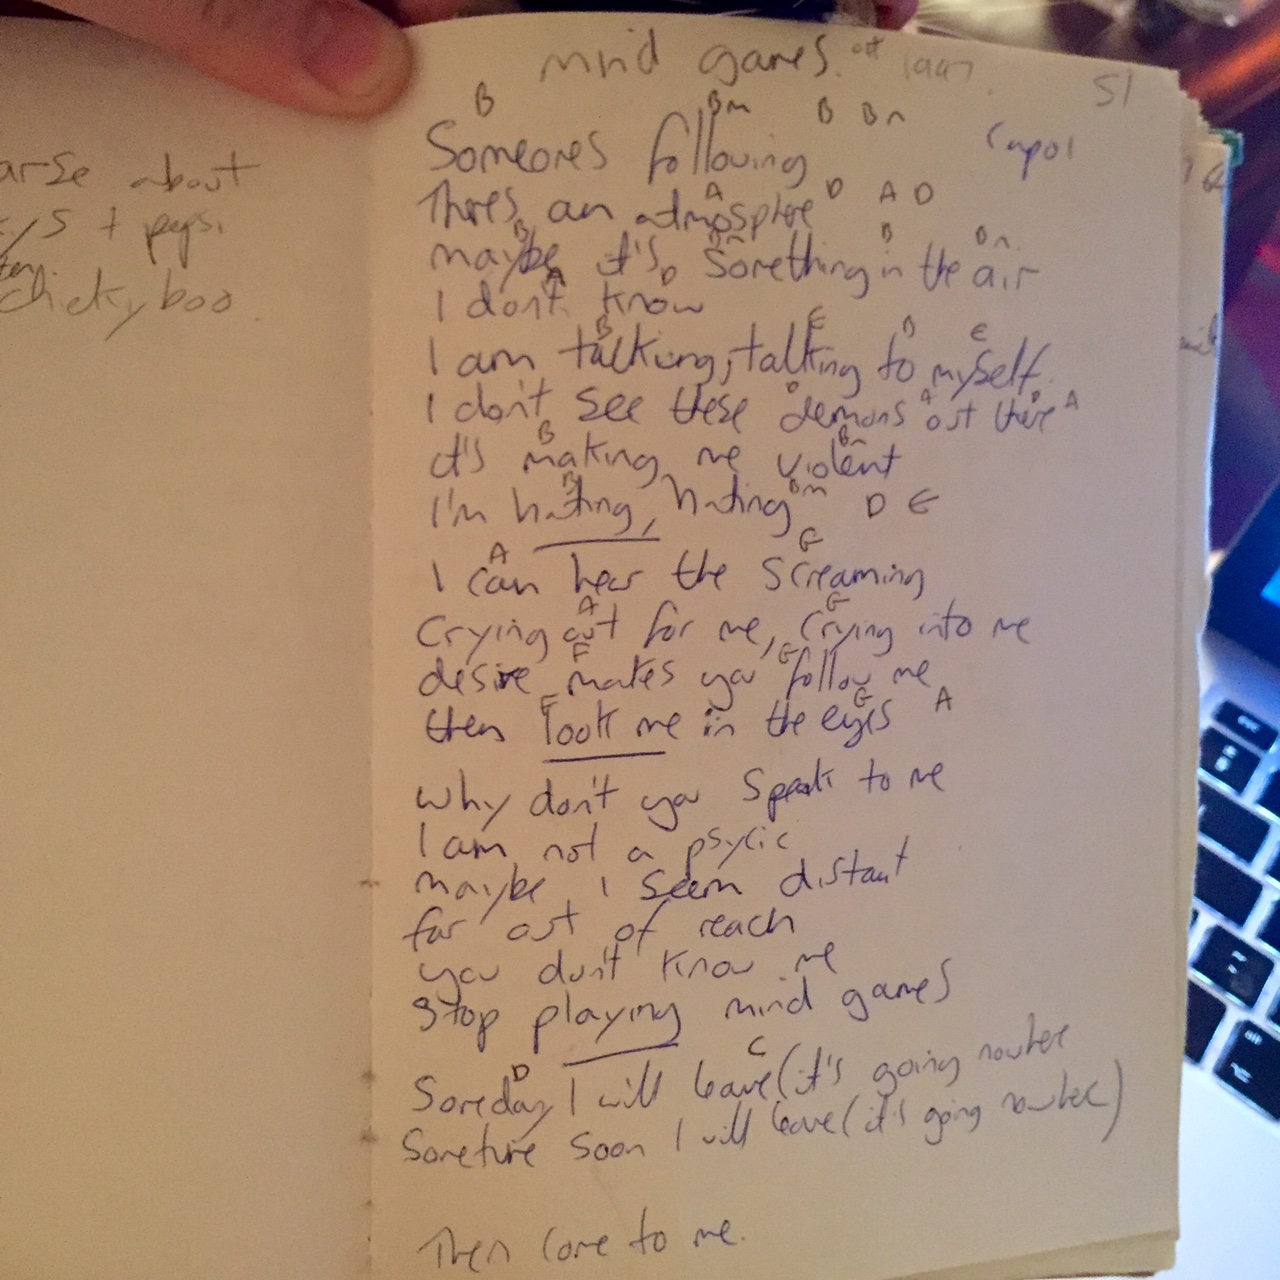 mind games. oct 1997. 51
B Bm B Bm
Someones following Capo 1
A D A D
Theres an atmosphere
B Bm B Bm
maybe it's something in the air
A D
I don't know
B E B E
I am talking, talking to myself
D A D A
I don't see these demons out there
B Bm
it's making me violent
B Bm D E
I'm hating, hating
A G
I can hear the screaming
A G
Crying out for me, crying into me
F G
desire makes you follow me
F G A
then look me in the eyes
Why don't you speak to me
I am not a psycic
maybe I seem distant
far out of reach
you don't know me
Stop playing mind games
D C
Someday I will leave (it's going nowhere
Sometime soon I will leave (it's going nowhere)
Then come to me.
arse about
ys + pepsi
chickyboo.